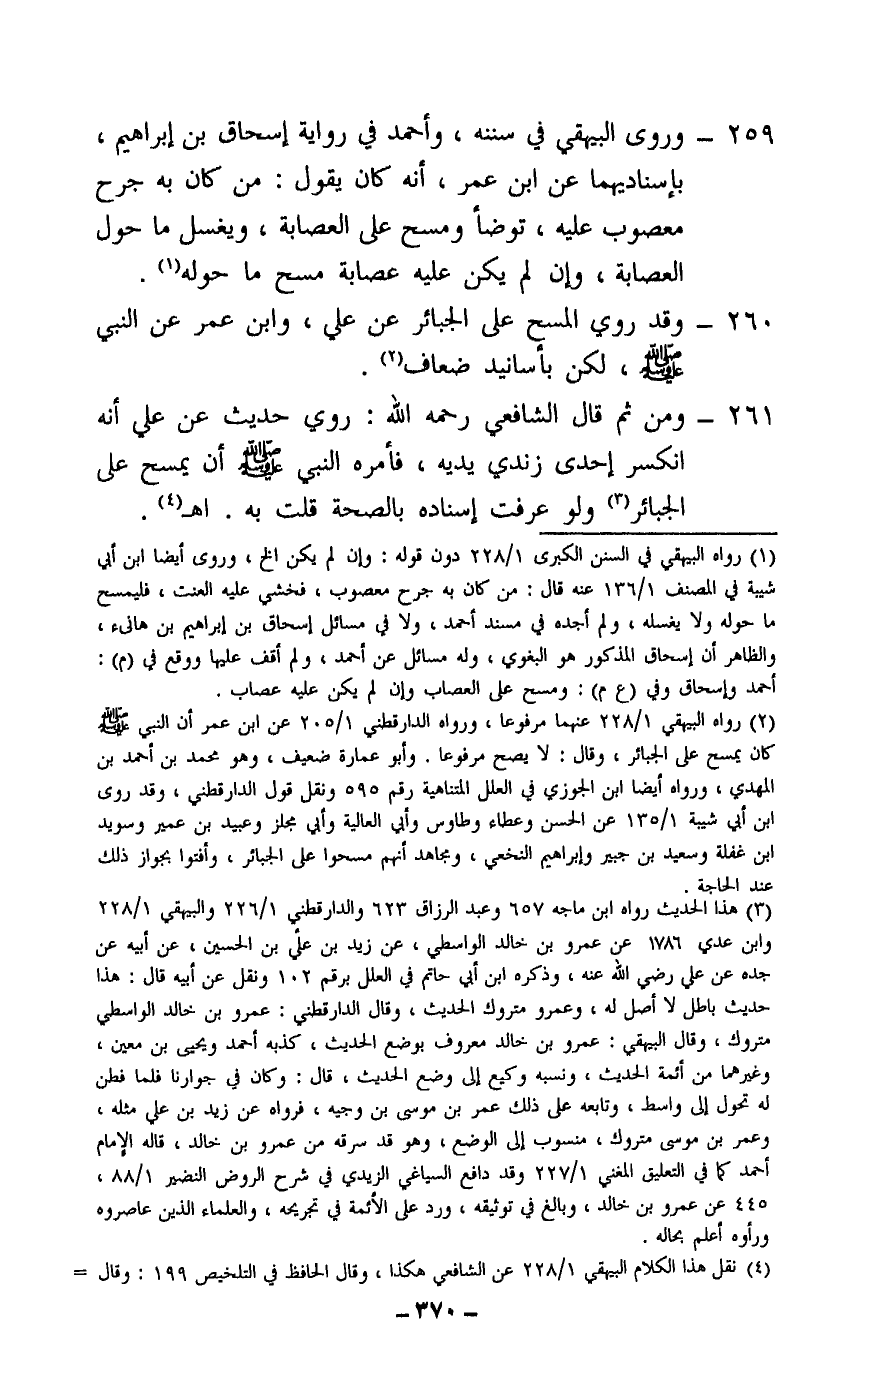 ٢٥٩ ـ وروى البيهقي في سننه ، وأحمد في رواية إسحاق بن إبراهيم ،
بإسناديهما عن ابن عمر ، أنه كان يقول : من كان به جرح
معصوب عليه ، توضأ ومسح على العصابة ، ويغسل ما حول
العصابة ، وإن لم يكن عليه عصابة مسح ما حوله(١) .
٢٦٠ ـ وقد روي المسح على الجبائر عن علي ، وابن عمر عن النبي
ﷺ ، لكن بأسانيد ضعاف(٢) .
٢٦١ ـ ومن ثم قال الشافعي رحمه الله : روي حديث عن علي أنه
انكسر إحدى زندي يديه ، فأمره النبي ﷺ أن يمسح على
الجبائر(٣) ولو عرفت إسناده بالصحة قلت به . اهـ(٤) .
(١) رواه البيهقي في السنن الكبرى ٢٢٨/١ دون قوله : وإن لم يكن الخ ، وروى أيضا ابن أبي
شيبة في المصنف ١٣٦/١ عنه قال : من كان به جرح معصوب ، فخشي عليه العنت ، فليمسح
ما حوله ولا يغسله ، ولم أجده في مسند أحمد ، ولا في مسائل إسحاق بن إبراهيم بن هانىء ،
والظاهر أن إسحاق المذكور هو البغوي ، وله مسائل عن أحمد ، ولم أقف عليها ووقع في (م) :
أحمد وإسحاق وفي (ع م) : ومسح على العصاب وإن لم يكن عليه عصاب .
(٢) رواه البيهقي ٢٢٨/١ عنهما مرفوعا ، ورواه الدارقطني ٢٠٥/١ عن ابن عمر أن النبي ﷺ
كان يمسح على الجبائر ، وقال : لا يصح مرفوعا . وأبو عمارة ضعيف ، وهو محمد بن أحمد بن
المهدي ، ورواه أيضا ابن الجوزي في العلل المتناهية رقم ٥٩٥ ونقل قول الدارقطني ، وقد روى
ابن أبي شيبة ١٣٥/١ عن الحسن وعطاء وطاوس وأبي العالية وأبي مجلز وعبيد بن عمير وسويد
ابن غفلة وسعيد بن جبير وإبراهيم النخعي ، ومجاهد أنهم مسحوا على الجبائر ، وأفتوا بجواز ذلك
عند الحاجة .
(٣) هذا الحديث رواه ابن ماجه ٦٥٧ وعبد الرزاق ٦٢٣ والدارقطني ٢٢٦/١ والبيهقي ٢٢٨/١
وابن عدي ١٧٨٦ عن عمرو بن خالد الواسطي ، عن زيد بن علي بن الحسين ، عن أبيه عن
جده عن علي رضي الله عنه ، وذكره ابن أبي حاتم في العلل برقم ١٠٢ ونقل عن أبيه قال : هذا
حديث باطل لا أصل له ، وعمرو متروك الحديث ، وقال الدارقطني : عمرو بن خالد الواسطي
متروك ، وقال البيهقي : عمرو بن خالد معروف بوضع الحديث ، كذبه أحمد ويحيى بن معين ،
وغيرهما من أئمة الحديث ، ونسبه وكيع إلى وضع الحديث ، قال : وكان في جوارنا فلما فطن
له تحول إلى واسط ، وتابعه على ذلك عمر بن موسى بن وجيه ، فرواه عن زيد بن علي مثله ،
وعمر بن موسى متروك ، منسوب إلى الوضع ، وهو قد سرقه من عمرو بن خالد ، قاله الإمام
أحمد كما في التعليق المغني ٢٢٧/١ وقد دافع السياغي الزيدي في شرح الروض النضير ٨٨/١ ،
٤٤٥ عن عمرو بن خالد ، وبالغ في توثيقه ، ورد على الأئمة في تجريحه ، والعلماء الذين عاصروه
ورأوه أعلم بحاله .
(٤) نقل هذا الكلام البيهقي ٢٢٨/١ عن الشافعي هكذا ، وقال الحافظ في التلخيص ١٩٩ : وقال =
ـ ٣٧٠ ـ